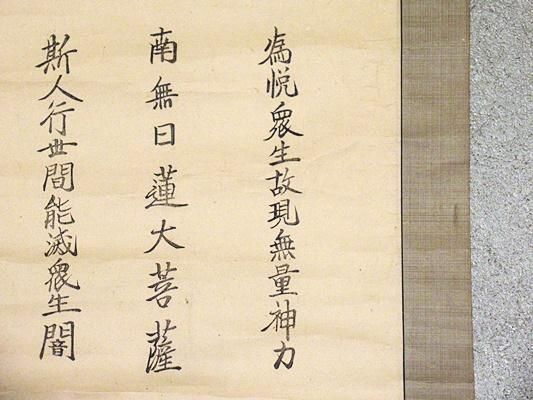 為悦衆生故現無量神力
南無日蓮大菩薩
斯人行世間能滅衆生闇